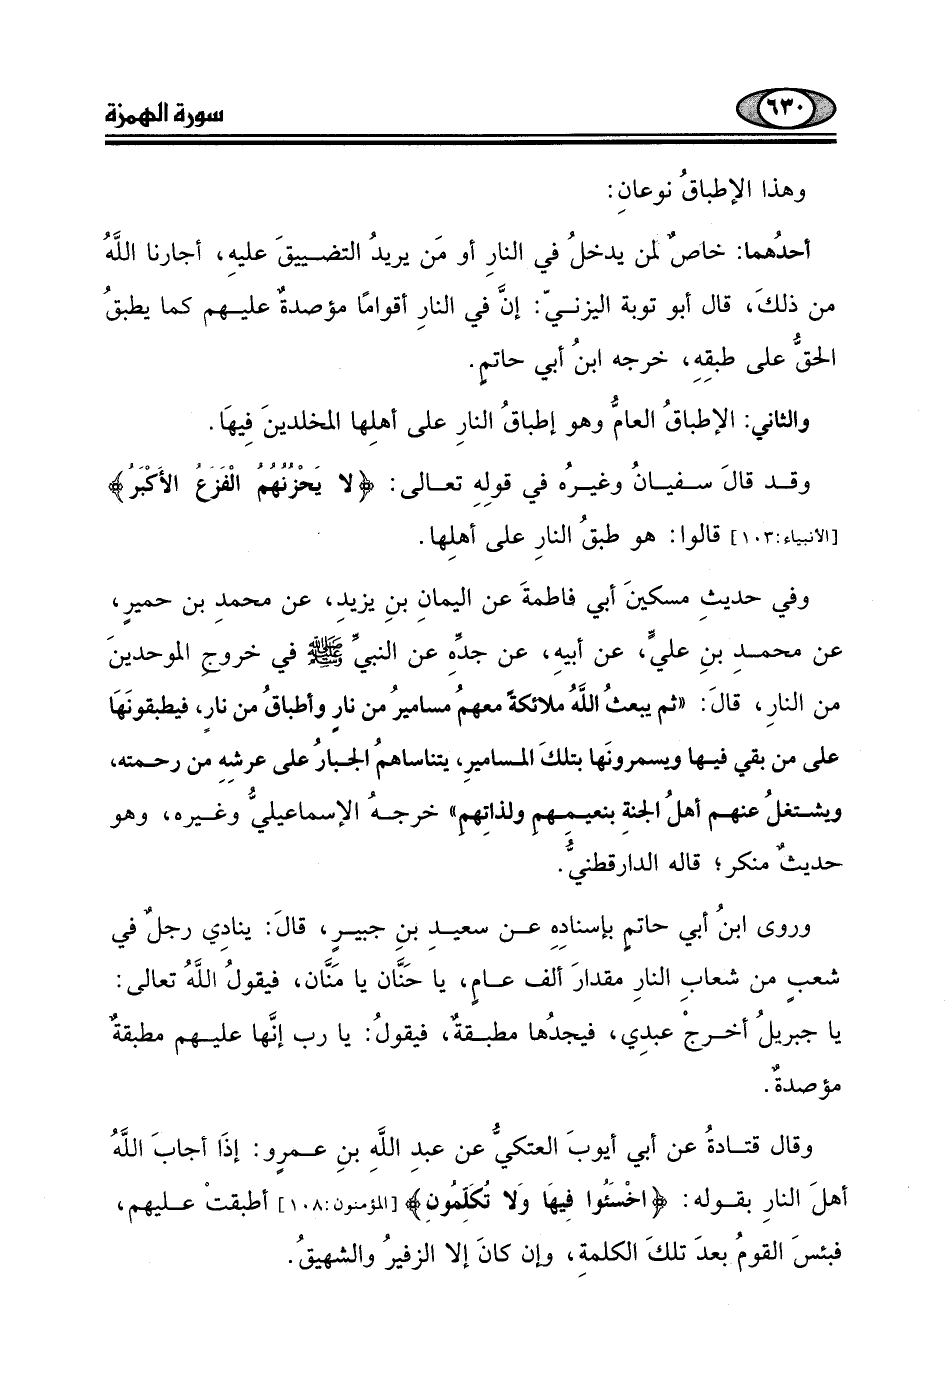 ٦٣٠
سورة الهمزة
وهذا الإطباقُ نوعانِ:
أحدُهما: خاصٌ لمن يدخلُ في النارِ أو مَن يريدُ التضييقَ عليهِ، أجارنا اللَّهُ
من ذلكَ، قال أبو توبة اليزنيّ: إنَّ في النارِ أقوامًا مؤصدةٌ عليهم كما يطبقُ
الحقُّ على طبقِهِ، خرجه ابنُ أبي حاتمٍ.
والثاني: الإطباقُ العامُّ وهو إطباقُ النارِ على أهلِها المخلدينَ فِيهَا.
وقد قالَ سفيانُ وغيرهُ في قولِهِ تعالى: ﴿لا يَحْزُنُهُمُ الْفَزَعُ الأَكْبَرُ﴾
[الأنبياء:١٠٣] قالوا: هو طبقُ النارِ على أهلِها.
وفي حديثِ مسكينَ أبي فاطمةَ عن اليمانِ بنِ يزيدِ، عن محمدِ بن حميرٍ،
عن محمدِ بنِ عليٍّ، عن أبيهِ، عن جدِّه عن النبيِّ ﷺ في خروجِ الموحدينَ
من النارِ، قالَ: «ثم يبعثُ اللَّهُ ملائكةً معهمُ مساميرُ من نارٍ وأطباقُ من نارٍ، فيطبقونَهَا
على من بقي فيها ويسمرونَها بتلكَ المساميرِ، يتناساهمُ الجبارُ على عرشِهِ من رحمتِه،
ويشتغلُ عنهم أهلُ الجنةِ بنعيمِهم ولذاتِهم» خرجهُ الإسماعيليُّ وغيره، وهو
حديثٌ منكر؛ قاله الدارقطنيُّ.
وروى ابنُ أبي حاتمٍ بإسنادِهِ عن سعيدِ بنِ جبيرٍ، قالَ: ينادِي رجلٌ في
شعبٍ من شعابِ النارِ مقدارَ ألفِ عامٍ، يا حَنَّان يا مَنَّان، فيقولُ اللَّهُ تعالى:
يا جبريلُ أخرجْ عبدِي، فيجدُها مطبقةٌ، فيقولُ: يا رب إنَّها عليهم مطبقةٌ
مؤصدةٌ.
وقال قتادةُ عن أبي أيوبَ العتكيُّ عن عبدِ اللَّهِ بنِ عمرٍو: إذَا أجابَ اللَّهُ
أهلَ النارِ بقوله: ﴿اخْسَئُوا فِيهَا وَلَا تُكَلِّمُونِ﴾ [المؤمنون:١٠٨] أطبقتْ عليهم،
فبئسَ القومُ بعدَ تلكَ الكلمةِ، وإن كانَ إلا الزفيرُ والشهيقُ.